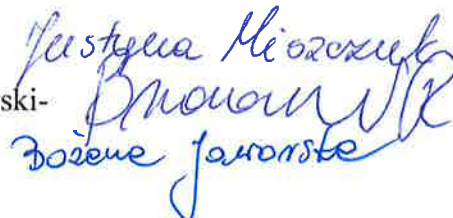 Justyna Miszczuk
ski-
Bożena Jaworska